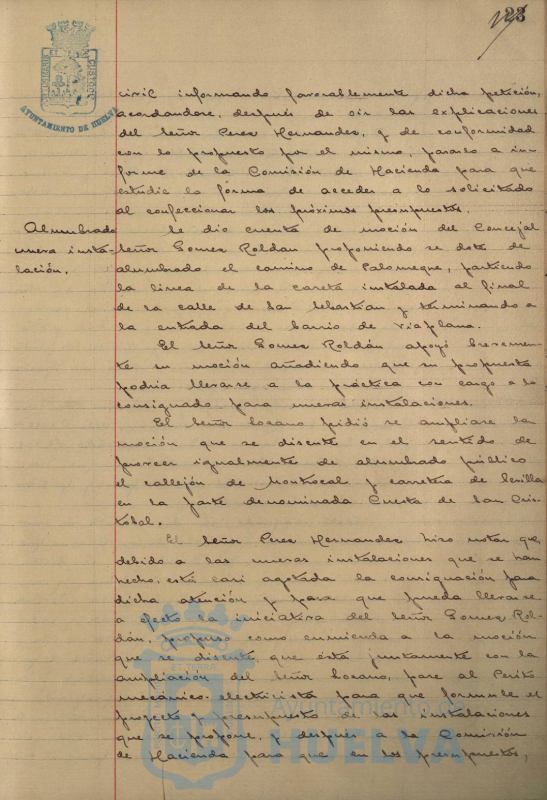 23
AYUNTAMIENTO DE HUELVA
civil informando favorablemente dicha petición,
acordandose, después de oir las explicaciones
del Señor Perez Hernandez, y de conformidad
con lo propuesto por el mismo, pasarlo a in-
forme de la Comisión de Hacienda para que
estudie la forma de acceder a lo solicitado
al confeccionar los próximos presupuestos.
Alumbrado
nueva insta-
lación.
Se dió cuenta de moción del Concejal
Señor Gomez Roldan proponiendo se dote de
alumbrado el camino de Palomeque, partiendo
la linea de la careta instalada al final
de la calle de San Sebastian y terminando a
la entrada del barrio de Viaplana.
El Señor Gomez Roldán apoyó brevemen-
te su moción añadiendo que su propuesta
podria llevarse a la práctica con cargo a lo
consignado para nuevas instalaciones.
El Señor Lozano pidió se ampliase la
moción que se discute en el sentido de
proveer igualmente de alumbrado público
el callejón de Montrocal y carretera de Sevilla
en la parte denominada Cuesta de San Cris-
tobal.
El Señor Perez Hernandez hizo notar que,
debido a las nuevas instalaciones que se han
hecho, está casi agotada la consignación para
dicha atención y para que pueda llevarse
a efecto la iniciativa del Señor Gomez Rol-
dán, propuso como enmienda a la moción
que se discute, que ésta juntamente con la
ampliación del Señor Lozano, pase al Perito
mecánico-electricista para que formule el
proyecto y presupuesto de las instalaciones
que se propone, y después a la Comisión
de Hacienda para que en los presupuestos,
Ayuntamiento de
HUELVA